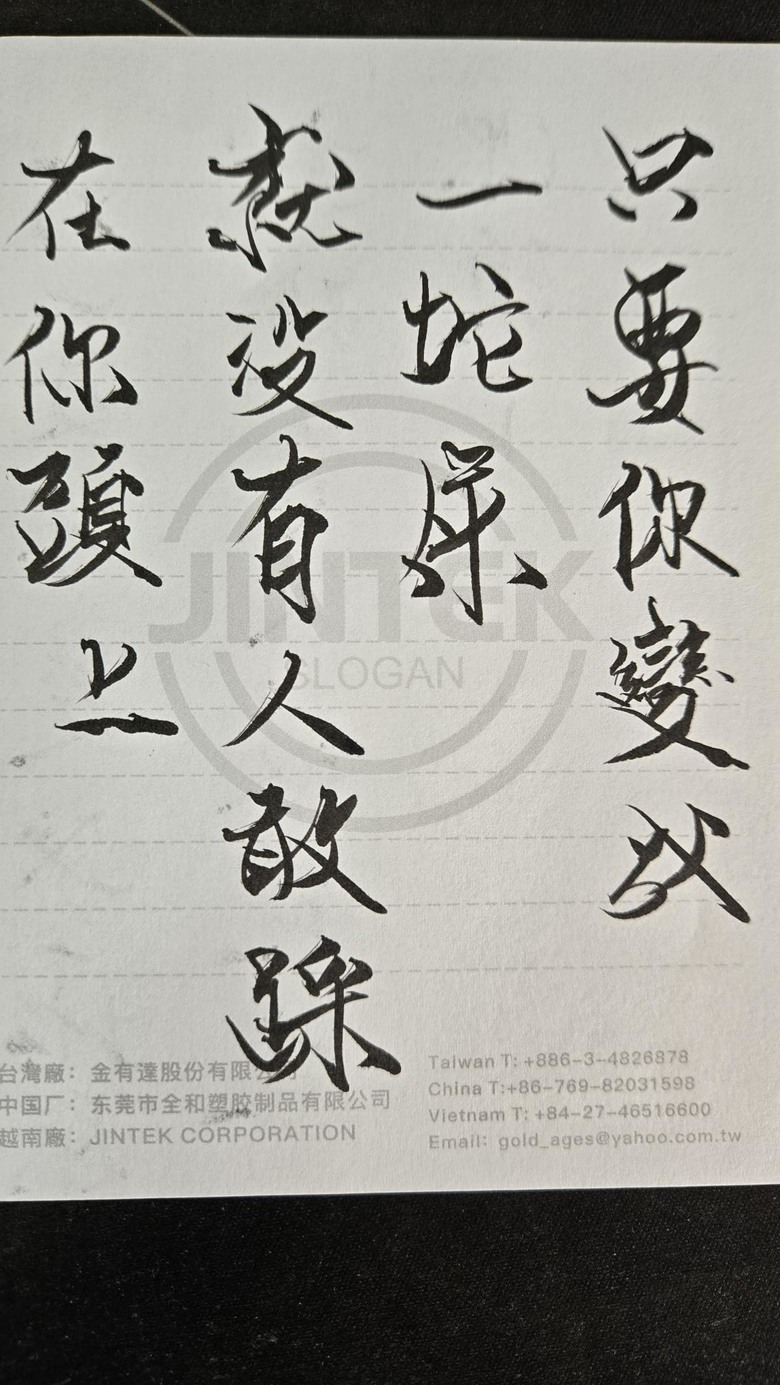 只要你變成
一蛇屎
就沒有人敢踩
在你頭上
JINTEK
SLOGAN
台灣廠：金有達股份有限公司
中国厂：东莞市全和塑胶制品有限公司
越南廠：JINTEK CORPORATION
Taiwan T: +886-3-4826878
China T:+86-769-82031598
Vietnam T: +84-27-46516600
Email: gold_ages@yahoo.com.tw